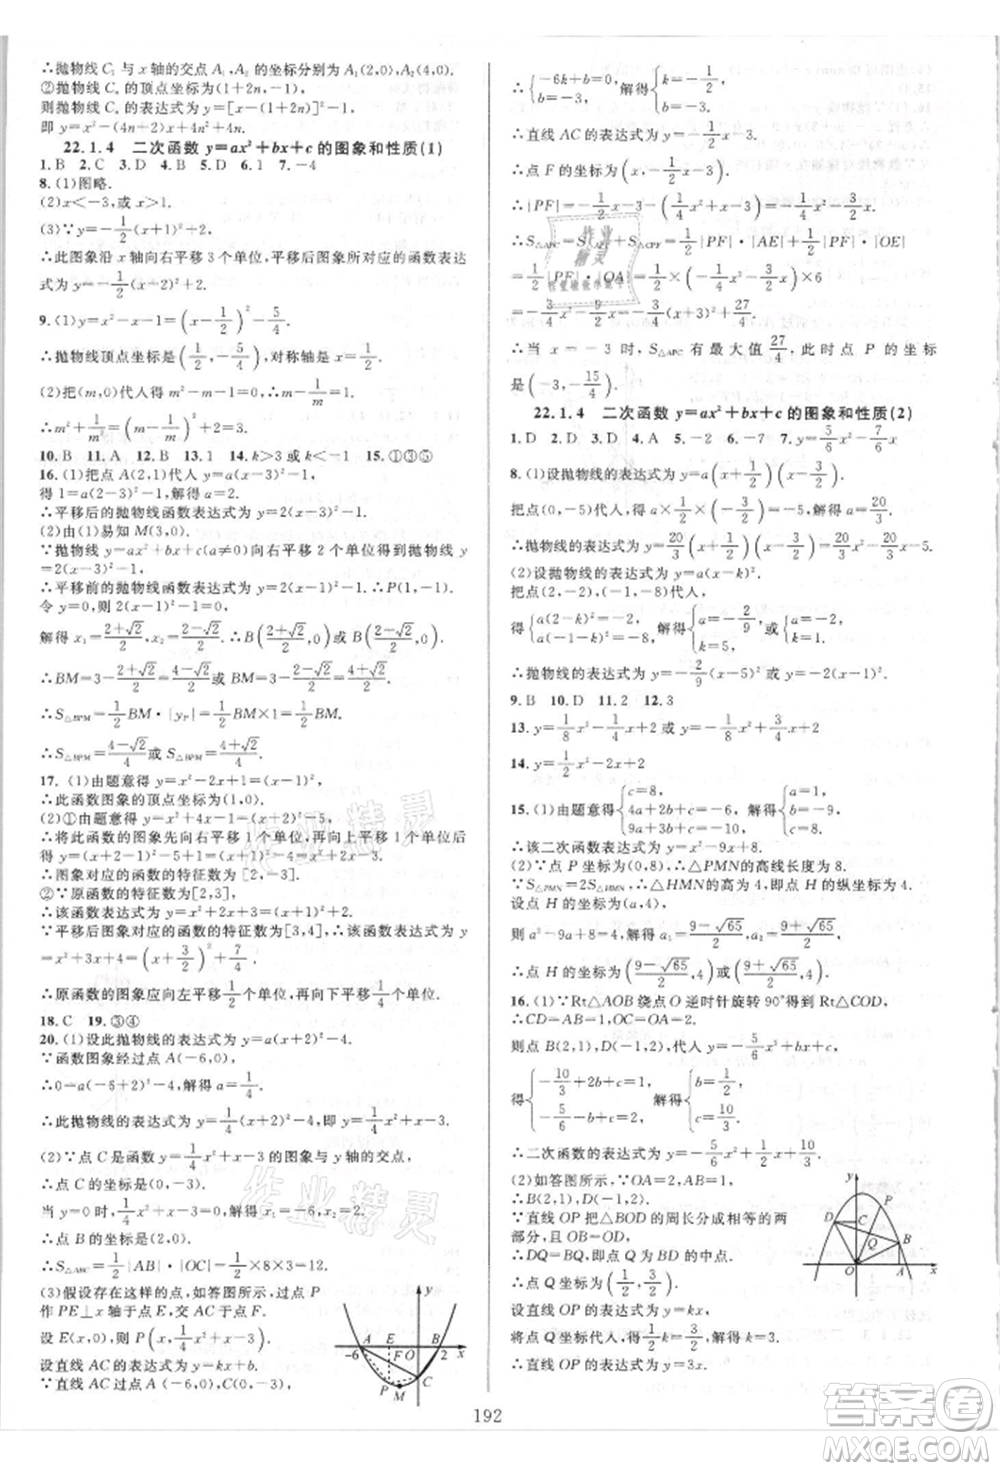 ∴抛物线 C₁ 与 x 轴的交点 A₁,A₂ 的坐标分别为 A₁(2,0),A₂(4,0).
②抛物线 Cₙ 的顶点坐标为(1+2n,-1).
则抛物线 Cₙ 的表达式为 y=[x-(1+2n)]²-1.
即 y=x²-(4n+2)x+4n²+4n.
22.1.4 二次函数 y=ax²+bx+c 的图象和性质(1)
1.B 2.C 3.D 4.B 5.D 6.1 7.-4
8.(1)图略.
(2)x<-3,或 x>1.
(3)∵y=-1/2(x+1)²+2,
∴此图象沿 x 轴向右平移 3 个单位,平移后图象所对应的函数表达
式为 y=-1/2(x-2)²+2.
9.(1)y=x²-x-1=(x-1/2)²-5/4.
∴抛物线顶点坐标是(1/2,-5/4),对称轴是 x=1/2.
(2)把(m,0)代入得 m²-m-1=0,∴m-1/m=1.
∴m²+1/m²=(m-1/m)²+2=3.
10.B 11.A 12.B 13.1 14.k>3 15.①③⑤
16.(1)把点 A(2,1)代入 y=a(x-3)²-1,
得 1=a(2-3)²-1,解得 a=2.
∴平移后的抛物线函数表达式为 y=2(x-3)²-1.
(2)由(1)易知 M(3,0).
∵抛物线 y=ax²+bx+c(a≠0)向右平移 2 个单位得到抛物线 y
=2(x-3)²-1.
∴平移前的抛物线函数表达式为 y=2(x-1)²-1.∴P(1,-1).
令 y=0,得 2(x-1)²-1=0.
解得 x₁=(2+√2)/2,x₂=(2-√2)/2.∴B((2+√2)/2,0)或 B((2-√2)/2,0).
∴BM=3-(2+√2)/2=(4-√2)/2或 BM=3-(2-√2)/2=(4+√2)/2.
∴S△BPM=1/2BM·|yP|=1/2BM×1=1/2BM.
∴S△BPM=(4-√2)/4或 S△BPM=(4+√2)/4.
17.(1)由题意得 y=x²-2x+1=(x-1)².
∴此函数图象的顶点坐标为(1,0).
(2)①由题意得 y=x²+4x-1=(x+2)²-5.
∴将此函数的图象先向右平移 1 个单位,再向上平移 1 个单位后
得 y=(x+2-1)²-5+1=(x+1)²-4=x²+2x-3.
∴图象对应的函数的特征数为[2,-3].
②∵原函数的特征数为[2,3],
∴该函数表达式为 y=x²+2x+3=(x+1)²+2.
∵平移后图象对应的函数的特征数为[3,4],∴该函数表达式为 y
=x²+3x+4=(x+3/2)²+7/4.
∴原函数的图象应向左平移1/2个单位,再向下平移1/4个单位.
18.C 19.③④
20.(1)设此抛物线的函数表达式为 y=a(x+2)²-4.
∵函数图象经过点 A(-6,0),
∴0=a(-6+2)²-4,解得 a=1/4.
∴此抛物线的表达式为 y=1/4(x+2)²-4=1/4x²+x-3.
(2)∵点 C 是函数 y=1/4x²+x-3 的图象与 y轴的交点,
∴点 C 的坐标是(0,-3).
当 y=0 时,有1/4x²+x-3=0,解得 x₁=-6,x₂=2.
∴点 B 的坐标是(2,0).
∴S△ABC=1/2|AB|·|OC|=1/2×8×3=12.
(3)假设存在这样的点,如答图所示,过点 P
作 PE⊥x 轴于点 E,交 AC 于点 F.
设 E(x,0),则 P(x,1/4x²+x-3).
设直线 AC 的表达式为 y=kx+b.
∵直线 AC 过点 A(-6,0),C(0,-3),
y
A E B
-6 F O 2 x
P M C
∴{-6k+b=0, b=-3. 解得{k=-1/2, b=-3.
∴直线 AC 的表达式为 y=-1/2x-3.
∴点 F 的坐标为 F(x,-1/2x-3).
∴|PF|=-1/2x-3-(1/4x²+x-3)=-1/4x²-3/2x.
∴S△APC=S△APF+S△CPF=1/2|PF|·|AE|+1/2|PF|·|OE|
=1/2|PF|·|OA|=1/2(-1/4x²-3/2x)×6
=-3/4x²-9/2x=-3/4(x+3)²+27/4.
∴当 x=-3 时,S△APC有最大值27/4,此时点 P 的坐标
是(-3,-15/4).
22.1.4 二次函数 y=ax²+bx+c 的图象和性质(2)
1.D 2.D 3.D 4.A 5.-2 6.-7 7.y=5/6x²-7/6x
8.(1)设抛物线的表达式为 y=a(x-1/2)(x+3/2).
把点(0,-5)代入,得 a×(-1/2)×3/2=-5,解得 a=20/3.
∴抛物线的表达式为 y=20/3(x-1/2)(x+3/2)=20/3x²+20/3x-5.
(2)设抛物线的函数表达式为 y=a(x-k)².
把点(2,-2),(-1,-8)代入,
得{a(2-k)²=-2, a(-1-k)²=-8. 解得{a=-2/9, k=5,或{a=-2, k=1.
∴抛物线的表达式为 y=-2/9(x-5)²或 y=-2(x-1)².
9.B 10.D 11.2 12.3
13.y=1/8x²-1/4x或 y=-1/8x²+3/4x
14.y=1/2x²-2x
15.(1)由题意得{c=8, 4a+2b+c=-6, 9a+3b+c=-10.解得{a=1, b=-9, c=8.
∴该二次函数表达式为 y=x²-9x+8.
(2)∵点 P 坐标为(0,8),∴△PMN的高线长度为 8.
∵S△PMN=2S△HMN,∴△HMN 的高为 4,即点 H 的纵坐标为 4.
设点 H 的坐标为(a,4),
则 a²-9a+8=4.解得 a₁=(9-√65)/2,a₂=(9+√65)/2.
∴点 H 的坐标为((9-√65)/2,4)或((9+√65)/2,4).
16.(1)∵Rt△AOB 绕点 O 逆时针旋转 90°得到 Rt△COD,
∴CD=AB=1,OC=OA=2.
则点 B(2,1),D(-1,2),代入 y=-5/6x²+bx+c,
得{-10/3+2b+c=1, -5/6-b+c=2. 解得{b=1/2, c=10/3.
∴二次函数表达式为 y=-5/6x²+1/2x+10/3.
(2)如答图所示,∵OA=2,AB=1,
∴B(2,1),D(-1,2).
∵直线 OP 把△BOD 的周长分成相等的两
部分,且 OB=OD,
∴DQ=BQ,即点 Q 为 BD 的中点.
∴点 Q 坐标为(1/2,3/2).
设直线 OP 的表达式为 y=kx,
将点 Q 坐标代入,得1/2k=3/2,解得 k=3.
∴直线 OP 的表达式为 y=3x.
y
D C P
Q B
O A x
192
作业精灵
答案圈
MXQE.COM